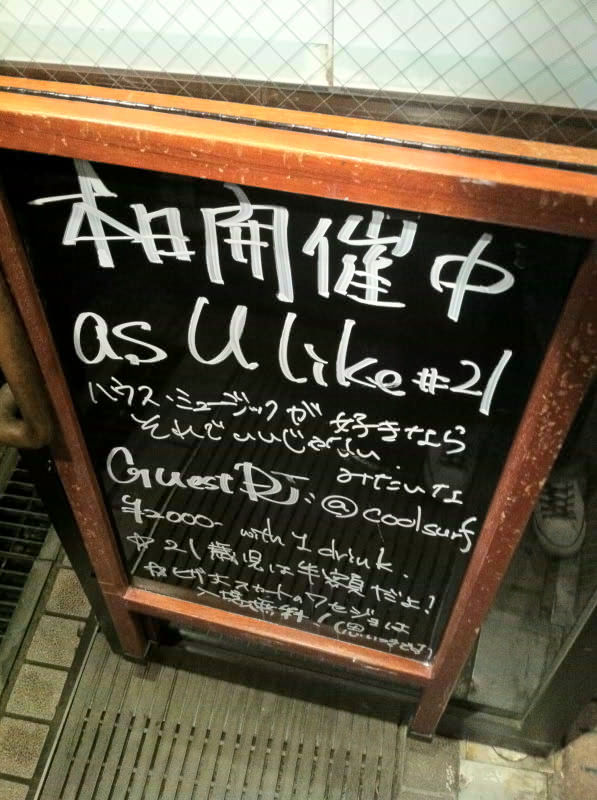 本日開催中
as U like #21
ハウス・ミュージックが好きなら
それでいいじゃない。
みたいな
Guest DJ: @coolsurf
¥2000- with 1 drink.
☆21歳児は半額だよ!
☆ヒザ上スカートのワセジョは
入場無料!(思いつきです)